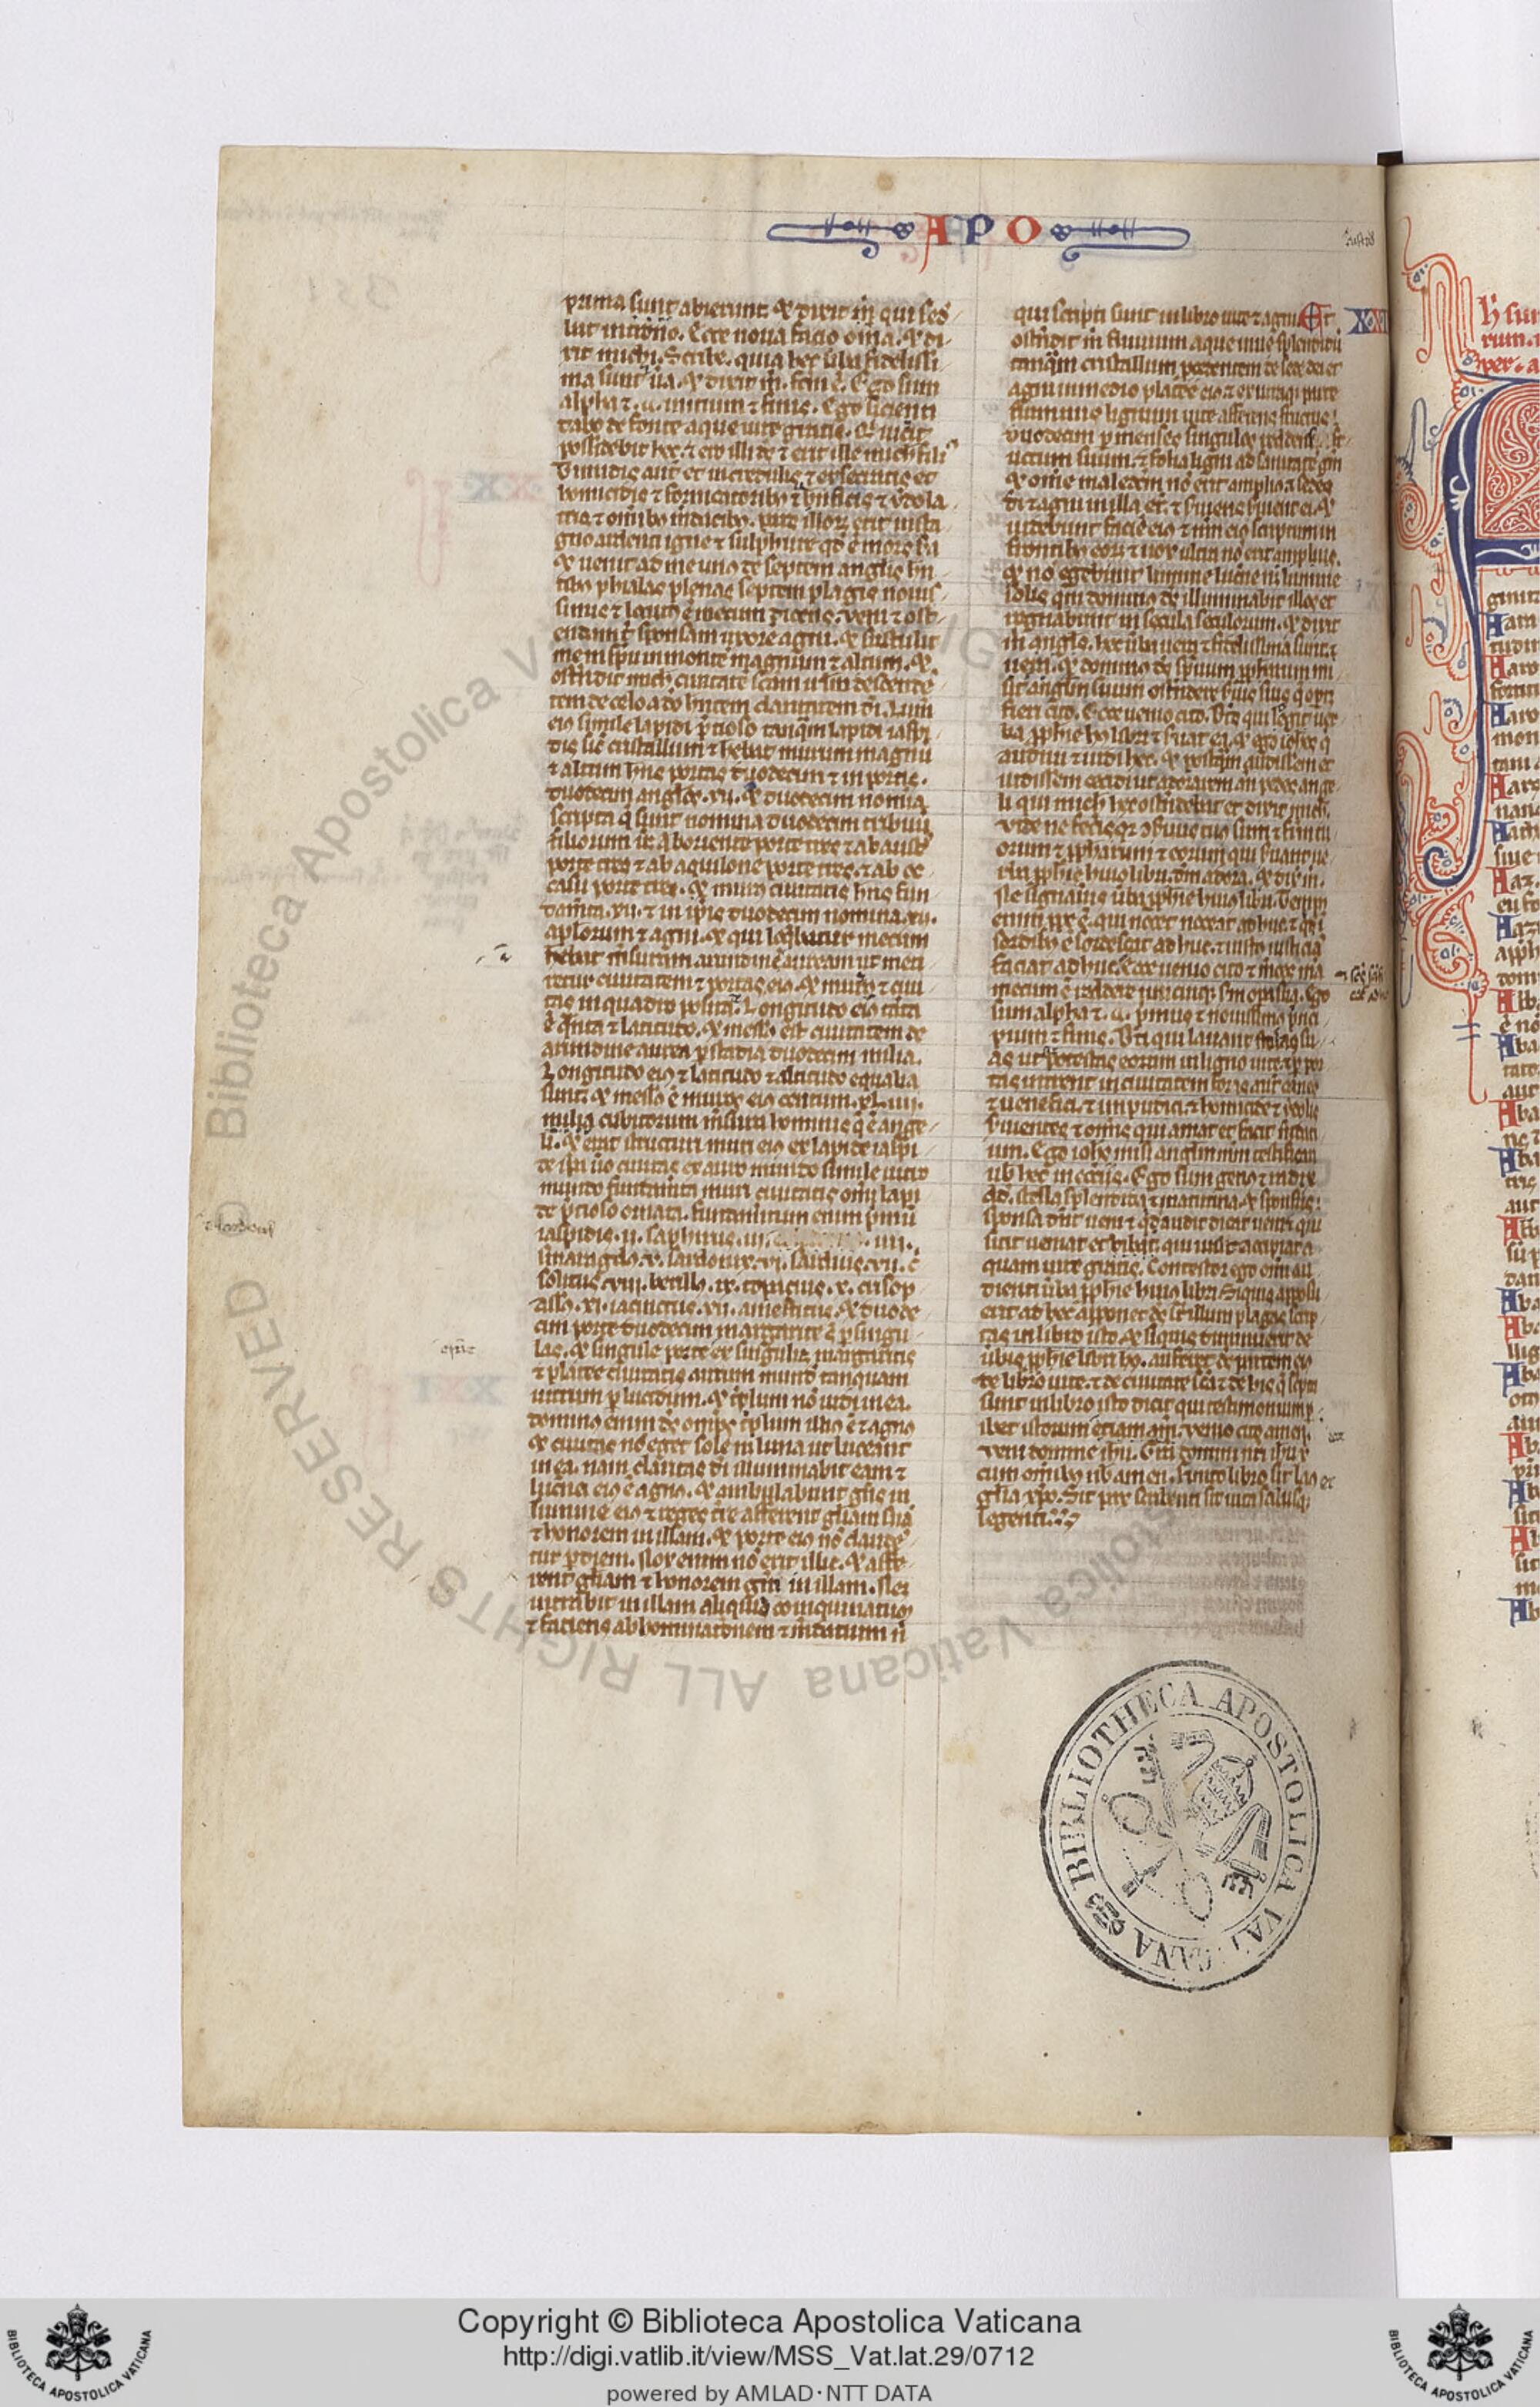 APO
prima sunt abierunt. et dixit q̄ qui sed
bat in trōno. Ecce noua facio om̄ia. et di
xit michi. Scribe. quia hec ūba fidelissi
ma sunt et ūa. et dixit m̄. fc̄m ē. Ego sum
alpha et .ω. initium et finis. Ego sicienti
dabo de fonte aque uiue gratis. Q̄i uic̄it
possidebit hec. et ero illi dē et erit ille mich̄ fili⁹
Timidis aūt et incredulis et execratis et
homicidis et fornicatorib⁹ et ūnficis et ydola
tris et om̄ib⁹ mēdacib⁹. pars illorū erit in sta
gno ardenti igne et sulphure qd̄ ē mors s̄a
et uenit ad me unus de septem anglis hn̄
tib⁹ phialas plenas septem plagis nouis
simis et locut⁹ ē mecum dicens. ueni et ost
endam t̄ sponsam uxorē agni. et sustulit
me in sp̄u in montē magnum et altum. et
ostēdit mich̄ ciuitatē scām ir̄lm descendē
tem de celo a dō hn̄tem claritatem dī. Lum̄
ei⁹ simile lapidi p̄cioso tanq̄m lapidi iaspi
dis sic̄ cristallum et hēbat murum magnū
et altum hn̄s portas duodecim et in portis
duodecim anglōs .xii. et duodecim nomīa
scripta q̄ sunt nomina duodecim tribuū
filiorum isr̄. Ab oriente porte tres et ab austro
porte tres et ab aquilone porte tres. et ab oc
casu porte tres. et mur⁹ ciuitatis hn̄s fun
dam̄ta .xii. et in ip̄is duodecim nomina .xii.
aplōrum et agni. et qui loq̄batur mecum
hēbat m̄suram arundinē auream ut meti
retur ciuitatem et portas ei⁹. et mur̄ et ciui
tas in quadro posita. Longitudo ei⁹ tāta
ē q̄nta et latitudo. et mens⁹ est ciuitatem de
arundine aurea p̄ stadia duodecim milia.
Longitudo ei⁹ et latitudo et altitudo equalia
sunt. et mens⁹ ē muros ei⁹ centum .xLiiii.
milia cubitorum m̄sura hominis q̄ ē ange
li. et erat structura muri ei⁹ ex lapide iaspi
de ip̄a ūo ciuitas ex auro mundo simile uitro
mundo fundam̄ta muri ciuitatis om̄i lapi
de p̄cioso ornata. fundam̄tum enim p̄mū
iaspidis .ii. saphirus .iii. .iiii.
smaragd⁹ .v. sardonix .vi. sardius .vii. c̄
solitus .viii. berill⁹ .ix. topacius .x. crisop
ass⁹ .xi. iacinctus .xii. ametistus. et duode
cim porte duodecim margarite s̄ p̄ singu
las. et singule porte ex singulis margaritis
et platee ciuitatis aurum mundū tanquam
uitrum p̄lucidum. et tēplum nō uidi in ea.
dominus enim dē om̄ips tēplum illi⁹ ē et agnus
et ciuitas nō eget sole nī luna ut luceant
in ea. nam claritas dī illuminabit eam et
lucerna ei⁹ ē agnus. et ambulabunt gn̄s in
lumine ei⁹ et reges tr̄e afferent glōam suā
et honorem in illam. et porte ei⁹ nō claudē
tur p̄ diem. Nox enim nō erit illic. et affe
rent glōam et honorem gn̄m in illam. Nec
intrabit in illam aliquid coinquinatum
et faciens abhominationem et m̄dacium n̄
qui scripti sunt in libro uite et agni. Et XXII
ostēdit m̄ fluuium aque uiue splendidū
tanq̄m cristallum. procedentem de sede dei et
agni in medio platee ei⁹ et ex utraq̄ parte
fluminis lignum uite afferens fructus
duodecim p̄ menses singulos reddens fr
uctum suum. et folia ligni ad sanitatē gn̄m
et om̄e maledcm̄ nō erit amplius. et sedes
dī et agni in illa er̄t. et s̄ui ei⁹ s̄uient ei. et
uidebunt faciē ei⁹ et nōm ei⁹ scriptum in
frontib⁹ eorū et nox ultra nō erit amplius.
et nō egebunt lumine lucerne nī lumine
solis qm̄ dominus dē illuminabit illos et
regnabunt in secula seculorum. et dixit
m̄ anglōs. hec ūba uera et fidelissima sunt. et
ueni. et dominus dē sp̄ituum p̄phetarum mi
sit anglm̄ suum ostēdere s̄uis suis q̄ oportet
fieri cito. Ecce uenio cito. Bt̄s qui legit uer
ba p̄phīe hui⁹ libri et s̄uat ea. et ego ioh̄es q̄
audiui et uidi hec. et postq̄m audissem et
uidissem cecidi ut adorarem an̄ pedes ange
li qui mich̄ hec ostēdebat et dixit mich̄.
Vide ne feceris 9s̄uus tuus sum et fratrum tu
orum et p̄phetarum et eorum qui s̄uant uer
ba p̄phīe hui⁹ libri. dm̄ adora. et dix̄ m̄.
Ne signaūis ūba p̄phīe hui⁹ libri. Temp⁹
enim p̄pe ē. qui nocet noceat adhuc. et q̄ in
sordib⁹ ē sordescat adhuc. et iustus iusticiā
faciat adhuc. Ecce uenio cito et m̄ces mea
mecum ē reddere unicuiq̄ s̄m opera sua. Ego
sum alpha et .ω. p̄mus et nouissim⁹ prīci
pium et finis. Bt̄i qui lauant stolas su
as ut sit potestas eorum in ligno uite. et p̄ por
tas intrent in ciuitatem foris aūt canes
et uenefici. et inpudici. et homicide et ydolis
s̄uientes et om̄is qui amat et facit m̄daci
um. Ego ioh̄es misi anglm̄ meum testificari
uob̄ hec in ecclīis. Ego sum genus et radix
dd̄. stella splendida et matutina. et sponsus
sponsa dn̄t ueni et q̄ audit dicat ueni. et qui
sitit ueniat et bibat. qui uult accipiat a
quam uite gratis. Contestor ego om̄i au
dienti ūba p̄phīe hui⁹ libri. Siquis apposu
erit ad hec apponet dē s̄r illum plagas scrip
tas in libro isto. et siquis diminuerit de
ūbis p̄phīe libri h⁹. auferet dē partem ei⁹
de libro uite. et de ciuitate scā et de his q̄ scpta
sunt in libro isto dicit qui testimonium p̄
ibet istorum etiam am̄. uenio cito amen.
veni domine ihū. Gr̄a domini nr̄i ihū x̄
cum om̄ib⁹ uob̄ amen. Finito libro sit laus et
glōa xp̄o. Sit pax scribenti sit uita salusq̄
legenti.
BIBLIOTHECA APOSTOLICA VATICANA
Biblioteca Apostolica Vaticana ALL RIGHTS RESERVED
Copyright © Biblioteca Apostolica Vaticana
http://digi.vatlib.it/view/MSS_Vat.lat.29/0712
powered by AMLAD·NTT DATA
BIBLIOTECA APOSTOLICA VATICANA
BIBLIOTECA APOSTOLICA VATICANA